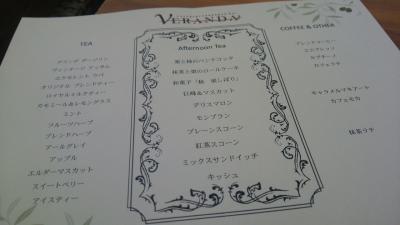 VERANDA
TEA
スプリング ダージリン
ヴィンテージ アッサム
エクセレント ウバ
オリジナル ブレンドティー
ロイヤルミルクティー
カモミール&レモングラス
ミント
フルーツハーブ
ブレンドハーブ
アールグレイ
アップル
エルダーマスカット
スイートベリー
アイスティー
Afternoon Tea
栗と柿のパンナコッタ
抹茶と栗のロールケーキ
和菓子「柚 栗しぼり」
巨峰&マスカット
デリスマロン
モンブラン
プレーンスコーン
紅茶スコーン
ミックスサンドイッチ
キッシュ
COFFEE & OTHER
ブレンドコーヒー
エスプレッソ
カプチーノ
カフェラテ
キャラメルマキアート
カフェモカ
抹茶ラテ